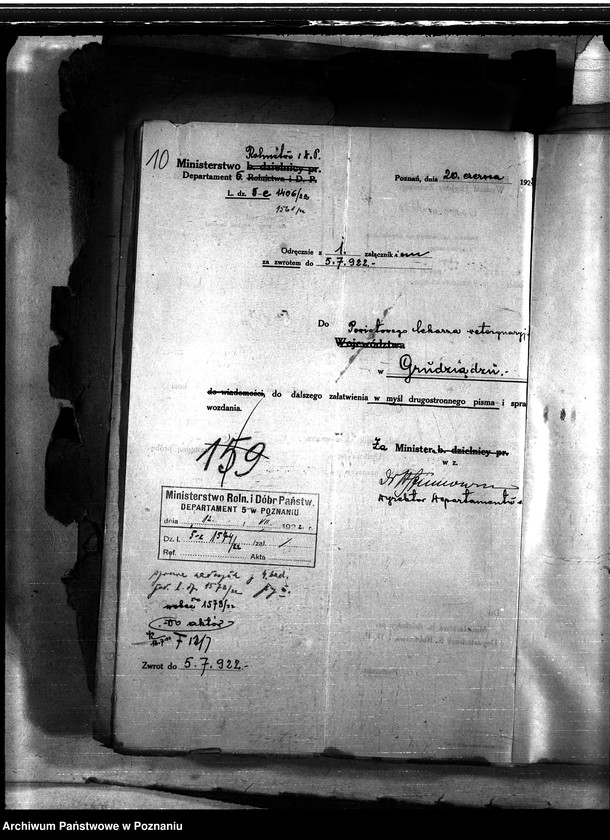 10
Ministerstwo b. dzielnicy pr. Rolnictwa i D.P.
Departament 5. Rolnictwa i D. P.
L. dz. 5-e 1406/22
Poznań, dnia 20. czerwca 192
Odręcznie z 1. załącznikiem
za zwrotem do 5.7.922.-
Do Powiatowego lekarza weterynaryj
Województwa
w Grudziądzu.-
do wiadomości, do dalszego załatwienia w myśl drugostronnego pisma i spra
wozdania.
159
Za Ministra b. dzielnicy pr.
w z.
Dyrektor Departamentu
Ministerstwo Roln. i Dóbr Państw.
DEPARTAMENT 5 W POZNANIU
dnia 12. / VII. 1922 r.
Dz. l. 5-e 1574/22 /zał. /
Ref. Akta
1578/22
Do aktów
F 12/7
Zwrot do 5.7.922.-
Archiwum Państwowe w Poznaniu